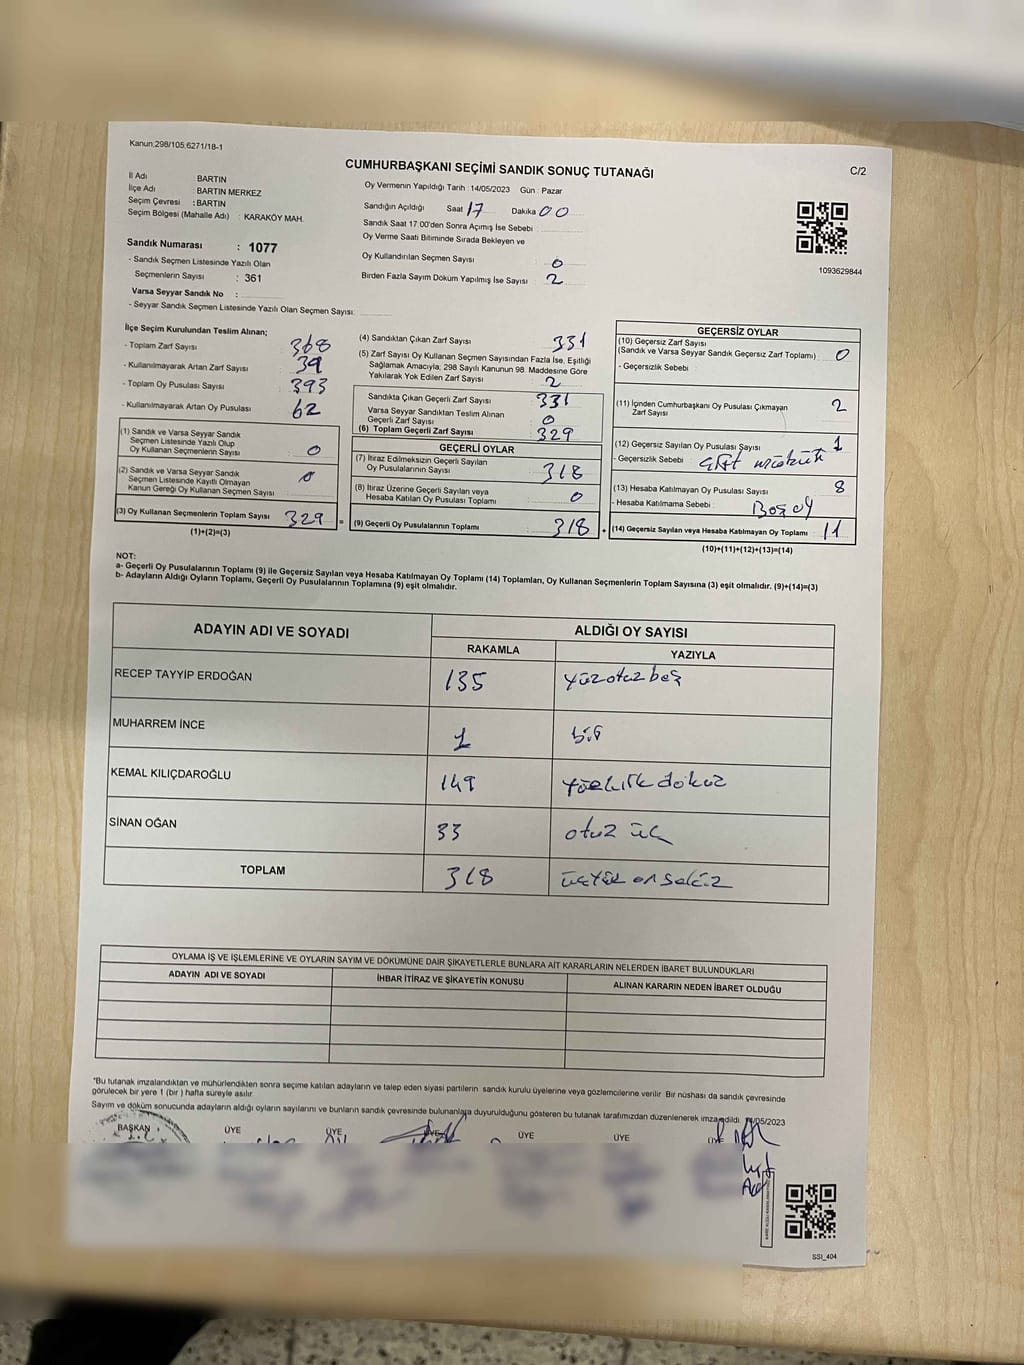 Kanun;298/105,6271/18-1
CUMHURBAŞKANI SEÇİMİ SANDIK SONUÇ TUTANAĞI
C/2
İl Adı : BARTIN
İlçe Adı : BARTIN MERKEZ
Seçim Çevresi : BARTIN
Seçim Bölgesi (Mahalle Adı) : KARAKÖY MAH.
Sandık Numarası : 1077
- Sandık Seçmen Listesinde Yazılı Olan
Seçmenlerin Sayısı : 361
Varsa Seyyar Sandık No :
- Seyyar Sandık Seçmen Listesinde Yazılı Olan Seçmen Sayısı:
Oy Vermenin Yapıldığı Tarih : 14/05/2023 Gün : Pazar
Sandığın Açıldığı Saat 17 Dakika 00
Sandık Saat 17.00'den Sonra Açılmış İse Sebebi :
Oy Verme Saati Bitiminde Sırada Bekleyen ve
Oy Kullandırılan Seçmen Sayısı : 0
Birden Fazla Sayım Döküm Yapılmış İse Sayısı : 2
1093629844
İlçe Seçim Kurulundan Teslim Alınan;
- Toplam Zarf Sayısı : 368
- Kullanılmayarak Artan Zarf Sayısı : 39
- Toplam Oy Pusulası Sayısı : 393
- Kullanılmayarak Artan Oy Pusulası : 62
(1) Sandık ve Varsa Seyyar Sandık
Seçmen Listesinde Yazılı Olup
Oy Kullanan Seçmenlerin Sayısı : 0
(2) Sandık ve Varsa Seyyar Sandık
Seçmen Listesinde Kayıtlı Olmayan
Kanun Gereği Oy Kullanan Seçmen Sayısı : 0
(3) Oy Kullanan Seçmenlerin Toplam Sayısı : 329 =
(1)+(2)=(3)
(4) Sandıktan Çıkan Zarf Sayısı : 331
(5) Zarf Sayısı Oy Kullanan Seçmen Sayısından Fazla İse, Eşitliği
Sağlamak Amacıyla, 298 Sayılı Kanunun 98. Maddesine Göre
Yakılarak Yok Edilen Zarf Sayısı : 2
Sandıkta Çıkan Geçerli Zarf Sayısı : 331
Varsa Seyyar Sandıktan Teslim Alınan
Geçerli Zarf Sayısı : 0
(6) Toplam Geçerli Zarf Sayısı : 329
GEÇERLİ OYLAR
(7) İtiraz Edilmeksizin Geçerli Sayılan
Oy Pusulalarının Sayısı : 318
(8) İtiraz Üzerine Geçerli Sayılan veya
Hesaba Katılan Oy Pusulası Toplamı : 0
(9) Geçerli Oy Pusulalarının Toplamı : 318 +
GEÇERSİZ OYLAR
(10) Geçersiz Zarf Sayısı
(Sandık ve Varsa Seyyar Sandık Geçersiz Zarf Toplamı) : 0
- Geçersizlik Sebebi :
(11) İçinden Cumhurbaşkanı Oy Pusulası Çıkmayan
Zarf Sayısı : 2
(12) Geçersiz Sayılan Oy Pusulası Sayısı : 1
- Geçersizlik Sebebi : çift
(13) Hesaba Katılmayan Oy Pusulası Sayısı : 8
- Hesaba Katılmama Sebebi : Boş oy
(14) Geçersiz Sayılan veya Hesaba Katılmayan Oy Toplamı : 11
(10)+(11)+(12)+(13)=(14)
NOT:
a- Geçerli Oy Pusulalarının Toplamı (9) ile Geçersiz Sayılan veya Hesaba Katılmayan Oy Toplamı (14) Toplamları, Oy Kullanan Seçmenlerin Toplam Sayısına (3) eşit olmalıdır. (9)+(14)=(3)
b- Adayların Aldığı Oyların Toplamı, Geçerli Oy Pusulalarının Toplamına (9) eşit olmalıdır.
ADAYIN ADI VE SOYADI ALDIĞI OY SAYISI
RAKAMLA YAZIYLA
RECEP TAYYİP ERDOĞAN 135 yüzotuzbeş
MUHARREM İNCE 1 bir
KEMAL KILIÇDAROĞLU 149 yüzkırk dokuz
SİNAN OĞAN 33 otuz üç
TOPLAM 318 üçyüz onsekiz
OYLAMA İŞ VE İŞLEMLERİNE VE OYLARIN SAYIM VE DÖKÜMÜNE DAİR ŞİKAYETLERLE BUNLARA AİT KARARLARIN NELERDEN İBARET BULUNDUKLARI
ADAYIN ADI VE SOYADI İHBAR İTİRAZ VE ŞİKAYETİN KONUSU ALINAN KARARIN NEDEN İBARET OLDUĞU
*Bu tutanak imzalandıktan ve mühürlendikten sonra seçime katılan adayların ve talep eden siyasi partilerin sandık kurulu üyelerine veya gözlemcilerine verilir. Bir nüshası da sandık çevresinde
görülecek bir yere 1 (bir ) hafta süreyle asılır.
Sayım ve döküm sonucunda adayların aldığı oyların sayılarını ve bunların sandık çevresinde bulunanlara duyurulduğunu gösteren bu tutanak tarafımızdan düzenlenerek imzalandı. /05/2023
BAŞKAN ÜYE ÜYE ÜYE ÜYE ÜYE ÜYE
SSI_404